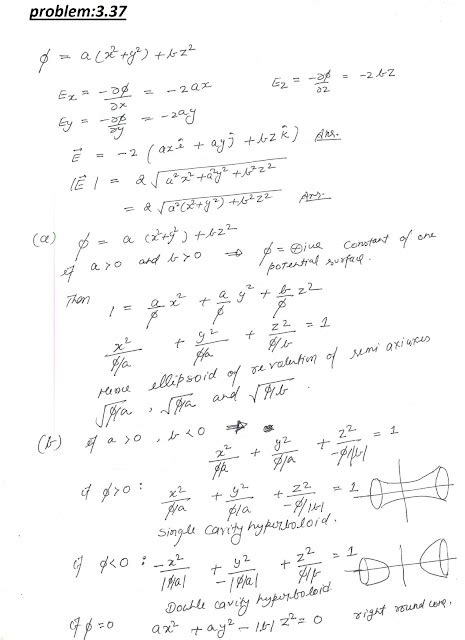 problem:3.37
φ = a(x²+y²) + bz²
Ex = -∂φ/∂x = -2ax Ez = -∂φ/∂z = -2bz
Ey = -∂φ/∂y = -2ay
E⃗ = -2 (axî + ayĵ + bz k̂) Ans.
|E⃗| = 2 √(a²x²+a²y²+b²z²)
= 2 √(a²(x²+y²)+b²z²) Ans.
(a) φ = a (x²+y²)+bz²
if a>0 and b>0 ⇒ φ = ⊕ive constant of one
potential surface.
Then 1 = a/φ x² + a/φ y² + b/φ z²
x²/(φ/a) + y²/(φ/a) + z²/(φ/b) = 1
Hence ellipsoid of revolution of semi
√(φ/a), √(φ/a) and √(φ/b).
(b) if a>0, b<0 ⇒
x²/(φ/a) + y²/(φ/a) + z²/(-φ/|b|) = 1
if φ>0: x²/(φ/a) + y²/(φ/a) + z²/(-φ/|b|) = 1
Single cavity hyperboloid.
if φ<0: -x²/|φ/a| + y²/(-|φ/a|) + z²/(φ/b) = 1
Double cavity hyperboloid
if φ=0 ax² + ay² - |b| z² = 0 right round cone.